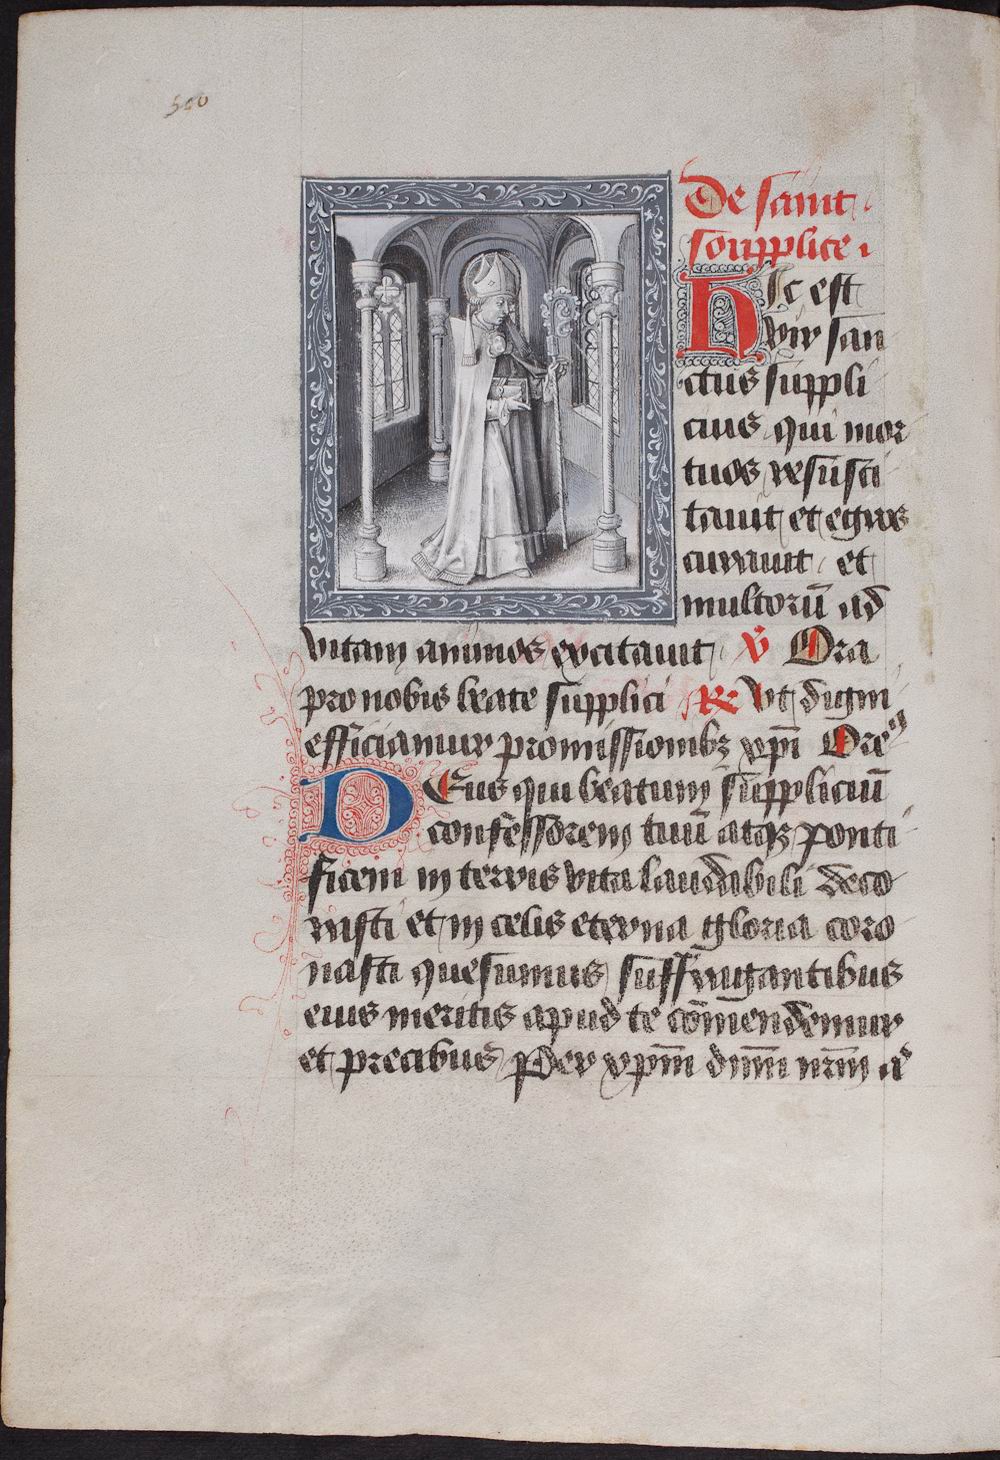 500
De saint
soupplice.
Hic est
vir san
ctus suppli
cius qui mor
tuos resusci
tauit et egros
curauit et
multorū ad
vitam animos excitauit. v̄ Ora
pro nobis beate supplici R Vt digni
efficiamur promissionibꝫ xp̄i Ore
Deus qui beatum suppliciū
confessorem tuū atqꝫ ponti
ficem in terris vita laudabili deco
rasti et in celis eterna gloria coro
nasti quesumus suffragantibus
eius meritis apud te cōmendemur
et precibus Per xp̄m dn̄m nr̄m a